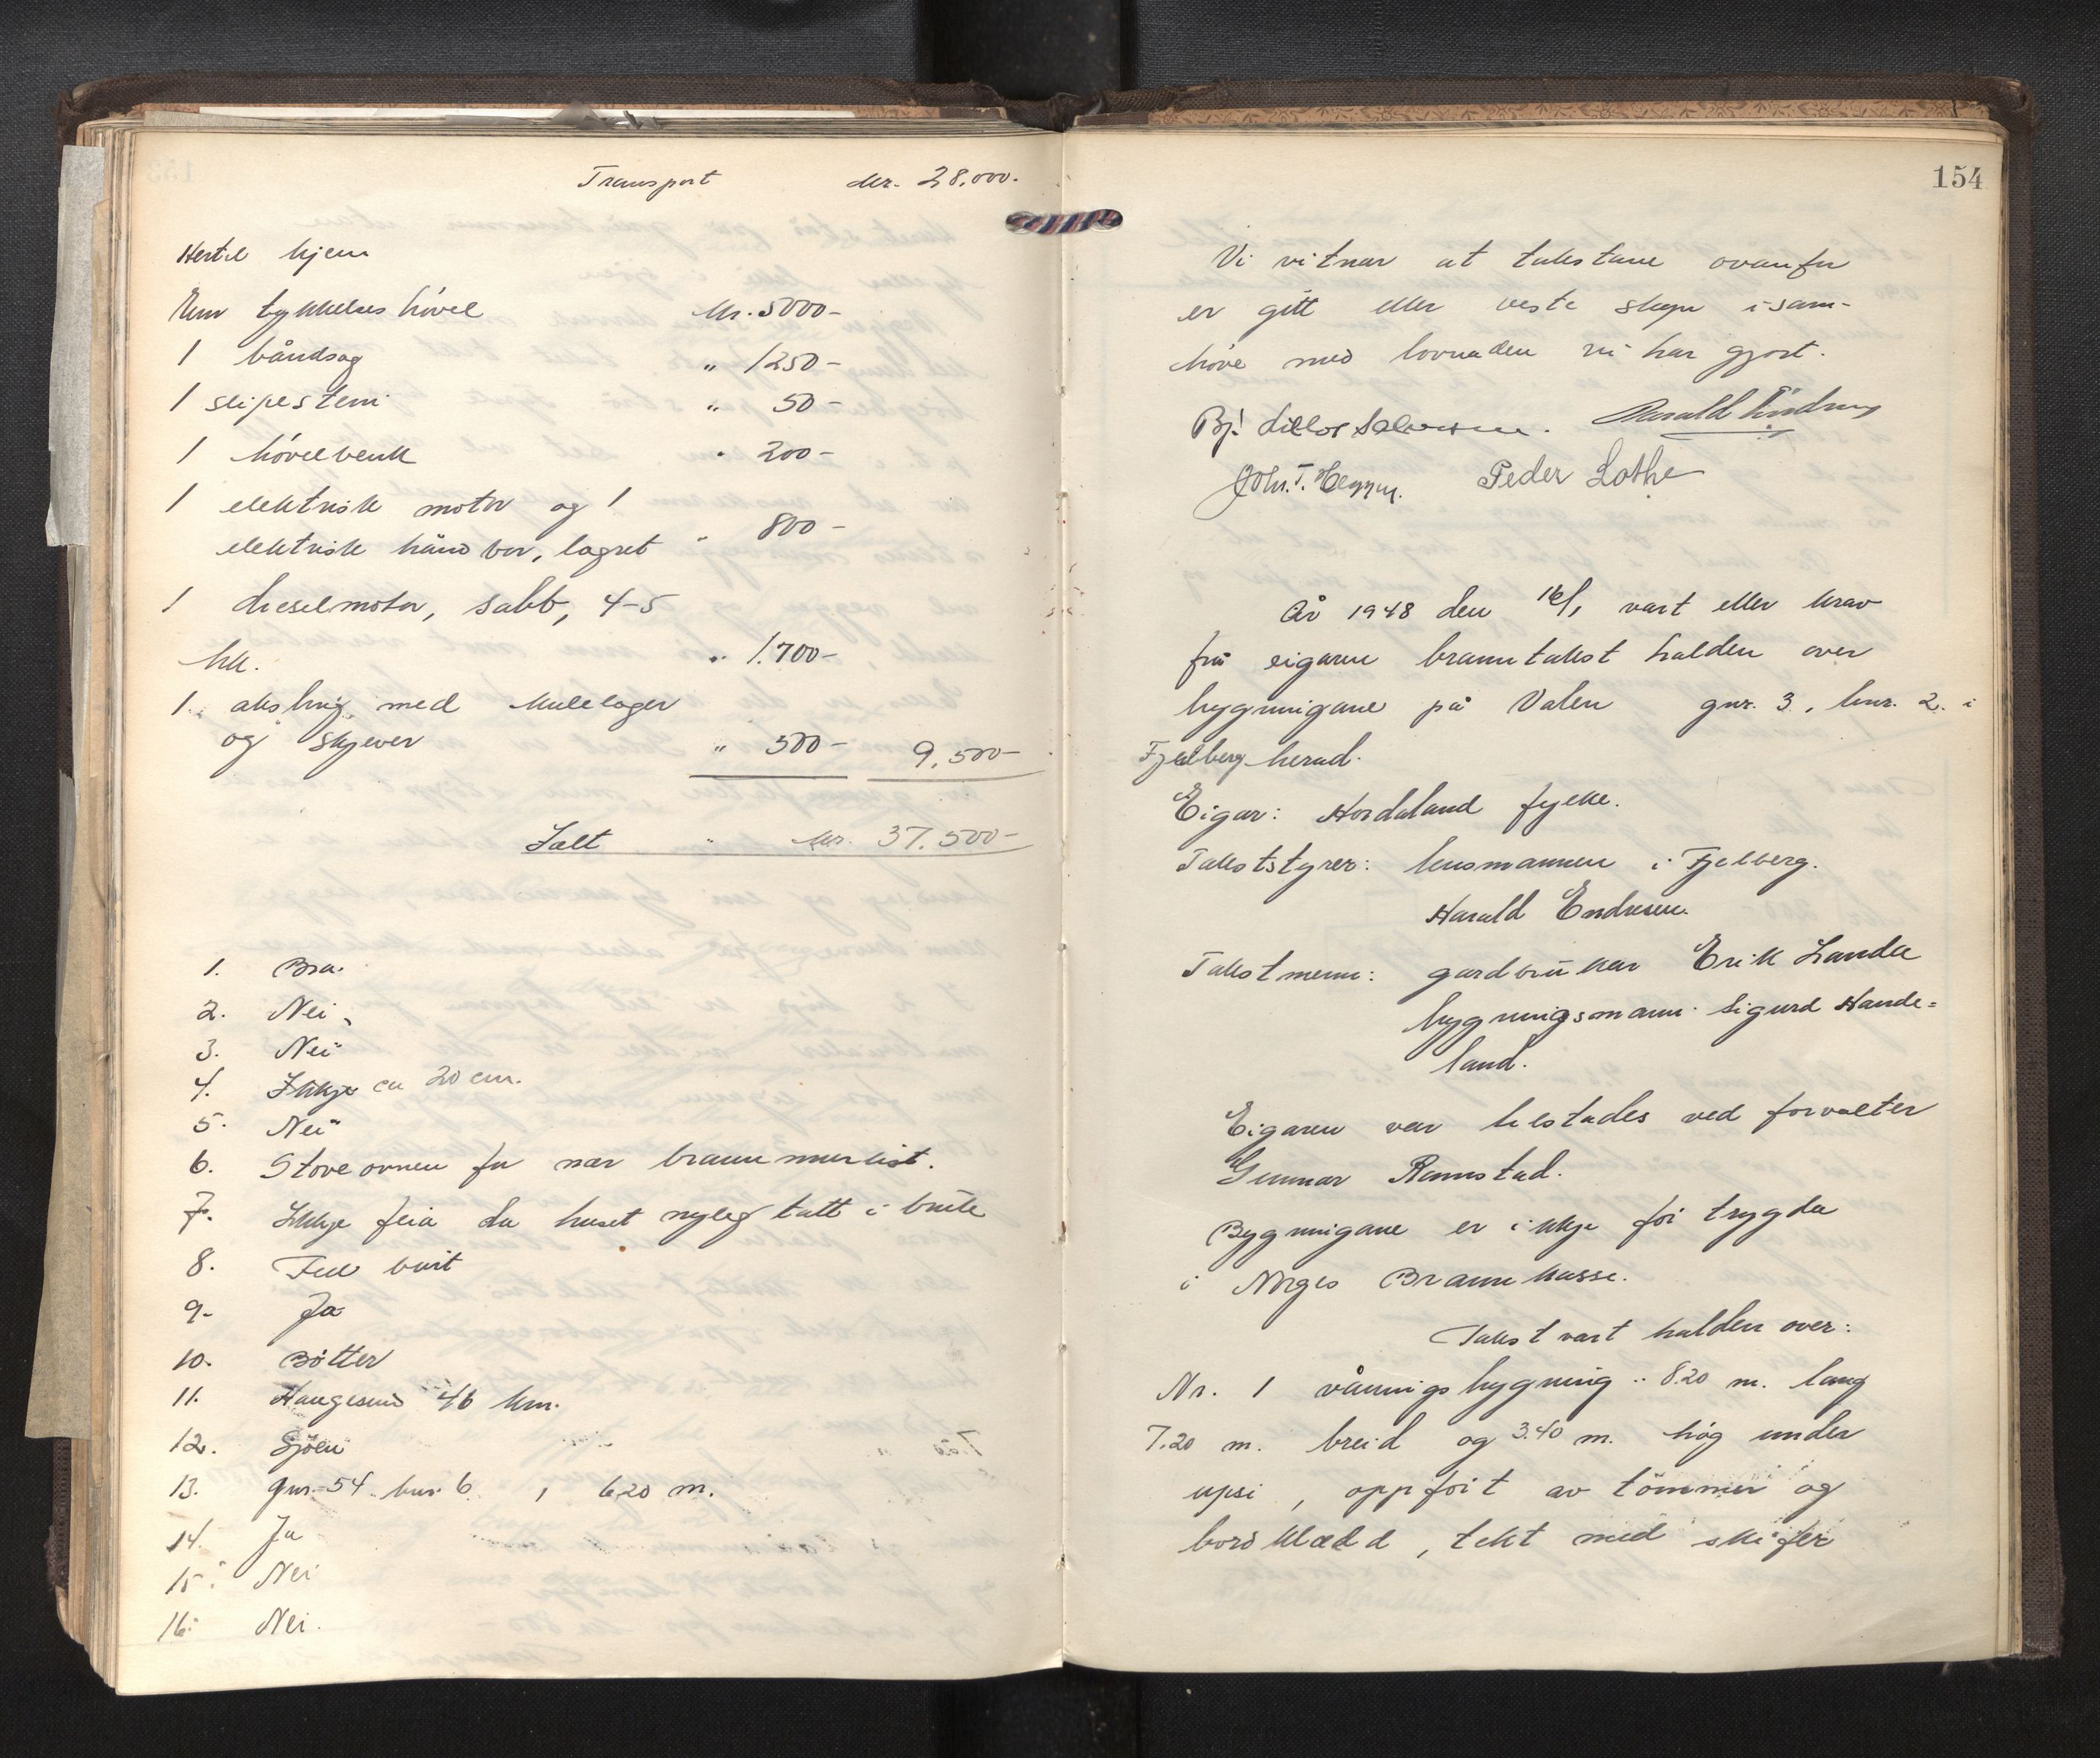 Transport kr. 28.000.-
Hertil kjem
Ein tykkelseshövel kr. 5000-
1 båndsag " 1250-
1 slipestein " 50-
1 hövelbenk " 200-
1 elektrisk motor og 1
elektrisk håndbor, lagret " 800-
1 dieselmotor, Sabb, 4-5
hk. " 1.700-
1 aksling med kulelager
og skjever " 500- 9,500-
Ialt kr. 37.500-
1. Bra.
2. Nei
3. Nei
4. Ikkje ca 20 cm.
5. Nei
6. Stoveovnen for nær brannmur
7. Ikkje feia da huset nyleg tatt i bruk
8. Fell burt
9. Ja
10. Bötter
11. Haugesund 46 km.
12. Sjöen
13. gnr. 54 bnr. 6, 620 m.
14. Ja
15. Nei
16. Nei.
154
Vi vitnar at takstane ovanfor
er gitt etter beste skjøn i sam-
höve med lovnaden vi har gjort.
Harald Endresen
Peder Lothe
År 1948 den 16/1 vart etter krav
frå eigaren branntakst halden over
bygningane på Valen gnr. 3, bnr. 2 i
Fjelberg herad.
Eigar: Hordaland fylke.
Takststyrer: lensmannen i Fjelberg.
Harald Endresen.
Takstmenn: gardbrukar Erik Landa
bygningsmann Sigurd Hande=
land.
Eigaren var tilstades ved forvalter
Gunnar Ramstad.
Bygningane er ikkje för trygda
i Norges Brannkasse.
Takst vart halden over:
Nr. 1 våningsbygning: 8.20 m. lang
7.20 m. breid og 3.40 m. høg under
upsi, oppfört av tömmer og
bordklædd, tekt med skifer